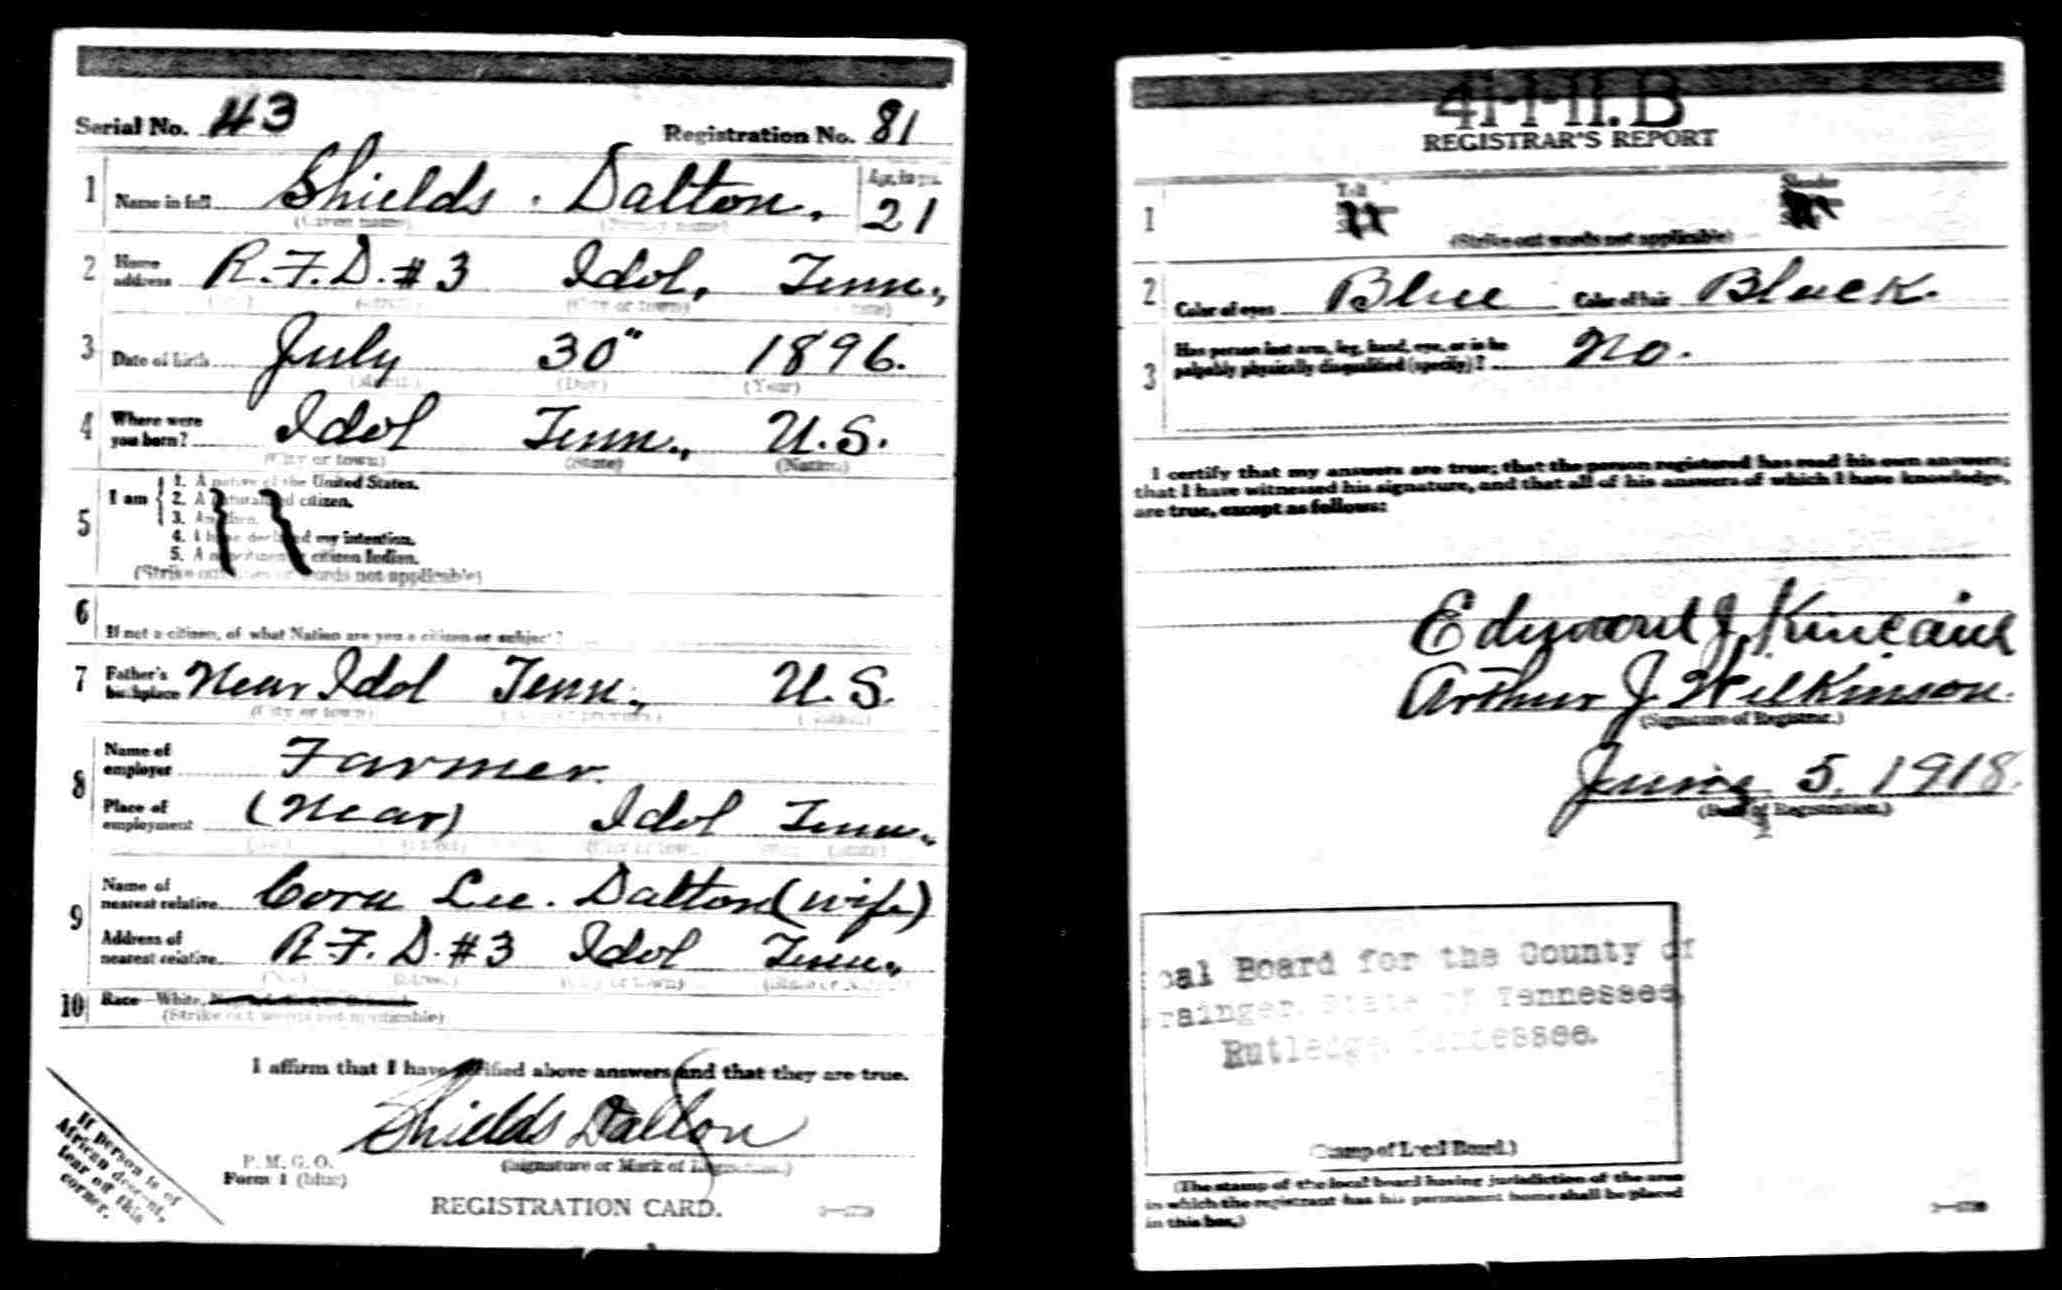 Serial No. 43 Registration No. 81
1 Name in full Shields Dalton. Age, in yrs. 21
(Given name) (Family name)
2 Home address R.F.D. #3 Idol, Tenn.,
(City or town)
3 Date of birth July 30" 1896.
(Month) (Day) (Year)
4 Where were you born? Idol Tenn., U.S.
(City or town) (State) (Nation)
5 I am 1. A native of the United States.
2. A naturalized citizen.
3. An alien.
4. I have declared my intention.
5. A noncitizen or citizen Indian.
(Strike out lines or words not applicable)
6 If not a citizen, of what Nation are you a citizen or subject?
7 Father's birthplace Near Idol Tenn., U.S.
(City or town)
8 Name of employer Farmer.
Place of employment (Near) Idol Tenn.,
9 Name of nearest relative Cora Lee. Dalton (wife)
Address of nearest relative R.F.D. #3 Idol Tenn.,
10 Race—White,
(Strike out words not applicable)
I affirm that I have verified above answers and that they are true.
Shields Dalton
(Signature or Mark of Registrant.)
P. M. G. O.
Form 1 (blue)
REGISTRATION CARD.
If person is of
African descent,
tear off this
corner.
REGISTRAR'S REPORT
1 Tall Slender
(Strike out words not applicable)
2 Color of eyes Blue Color of hair Black.
3 Has person lost arm, leg, hand, eye, or is he
palpably physically disqualified (specify)? No.
I certify that my answers are true; that the person registered has read his own answers;
that I have witnessed his signature, and that all of his answers of which I have knowledge,
are true, except as follows:
Edmond J. Kincaid
Arthur J. Wilkinson.
(Signature of Registrar.)
June 5, 1918.
(Date of Registration.)
cal Board for the County of
rainger, State of Tennessee,
Rutledge, Tennessee.
(Stamp of Local Board.)
(The stamp of the local board having jurisdiction of the area
in which the registrant has his permanent home shall be placed
in this box.)